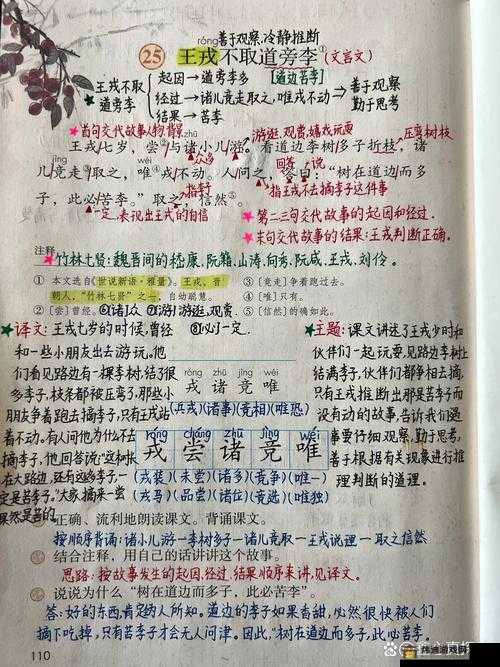 善于观察、冷静推断
róng
25 王戎不取道旁李① (文言文)
王戎不取道旁李
起因→道旁李多 [道边苦李]
经过→诸儿竞走取之,唯戎不动
结果→苦李
善于观察
勤于思考
首句交代故事人物、背景
游逛、观赏、嬉戏玩耍
压弯树枝
zhū
王戎七岁,尝②与诸小儿游。看道边李树多子折枝,诸
众多
回答 说
jìng wéi
儿竞走③取之,唯④戎不动。人问之,答曰:“树在道边而多
指李子
指王戎不去摘李子这件事
子,此必苦李。”取之,信然⑤。
一定,表现出王戎的自信
第二三句交代故事的起因和经过.
末句交代故事的结果:王戎判断正确.
注释
竹林七贤:魏晋间的嵇康、阮籍、山涛、向秀、阮咸、王戎、刘伶.
① 本文选自《世说新语·雅量》。王戎,晋朝人,“竹林七贤”之一,自幼聪慧。
② [尝]曾经。
③ [竞走]争着跑过去。
④ [唯]只有。
⑤ [信然]的确如此。
⑥[诸]众 ⑦[游]游逛,观赏. ⑧[必]一定.
译文:王戎七岁的时候,曾经
和一些小朋友出去游玩。他
们看见路边有一棵李树,结了很
多李子,枝条都被压弯了,那些小
朋友争着跑去摘李子,只有王戎站
着不动。有人问他为什么不去
摘李子,他回答说:“这种树
在大路边,还有这多李子,一
定是苦李子。”大家摘来一尝
果然是苦的.
主题:课文讲述了王戎少时和
伙伴们一起玩耍,见路边李树上
结满李子,伙伴们都争相去摘,
只有王戎推断出那是苦李而
没有动的故事,告诉我们遇
事要仔细观察,勤于思考,
善于根据有关现象进行推
理判断的道理.
róng zhū jìng wéi
戎 诸 竞 唯
(兵戎)(诸事)(竞相)(唯恐)
róng cháng zhū jìng wéi
戎 尝 诸 竞 唯
(戎装)(未尝)(诸多)(竞争)(唯一)
(戎马)(品尝)(诸位)(竞选)(唯独)
正确、流利地朗读课文。背诵课文。
按顺序背诵:诸小儿游—李树多子—诸儿竞取—王戎说理—取之信然
结合注释,用自己的话讲讲这个故事。
思路:按故事发生的起因、经过、结果顺序来讲,见译文.
说说为什么“树在道边而多子,此必苦李。”
答:好的东西,肯定为人所知。道边的李子如果香甜,必然很快被人们
摘下吃掉,只有苦李子才会无人问津。因此,“树在道边而多子,此必苦李.
110